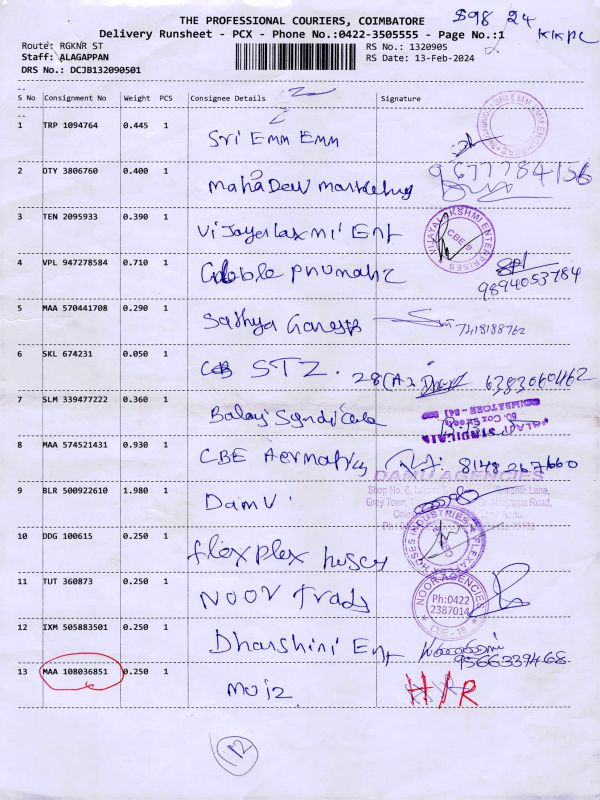 THE PROFESSIONAL COURIERS, COIMBATORE
$98 24
Delivery Runsheet - PCX - Phone No.:0422-3505555 - Page No.:1
KKPC
Route: RGKNR ST
RS No.: 1320905
Staff: ALAGAPPAN
RS Date: 13-Feb-2024
DRS No.: DCJB132090501
S No Consignment No Weight PCS Consignee Details Signature
1 TRP 1094764 0.445 1 Sri Emm Emm
2 OTY 3806760 0.400 1 Mahadev marketing 9677784156
3 TEN 2095933 0.390 1 Vijayalaxmi Ent
VIJAYALAKSHMI ENTERPRISES CBE-9
4 VPL 947278584 0.710 1
9894053784
5 MAA 570441708 0.290 1 Sathya Ganesh 7418188762
6 SKL 674231 0.050 1 STZ. 28(A)
7 SLM 339477222 0.360 1 Balaji Syndicate
BALAJI SYNDICATE
COIMBATORE - 641
8 MAA 574521431 0.930 1 CBE 8148267660
9 BLR 500922610 1.980 1 Damu
DAMU AGENCIES
Shop No. 6,
Grey Town,
10 DDG 100615 0.250 1 flexflex hoses
HOSES INDUSTRIES
11 TUT 360873 0.250 1 Noor Trads
NOOR AGENCIES
Ph:0422
2387014
CBE - 18
12 IXM 505883501 0.250 1 Dharshini Ent
9566339468
13 MAA 108036851 0.250 1 Moiz H/R
12